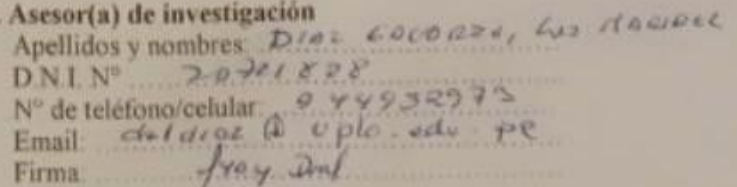 Asesor(a) de investigación
Apellidos y nombres Diaz
D.N.I. N° 20701828
N° de teléfono/celular: 944932973
Email: d.ldiaz @ upla.edu.pe
Firma